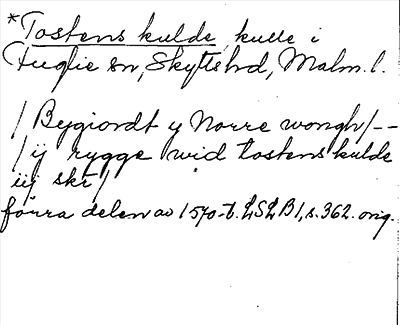 *Tostens kulde, kulle i
Fuglie sn, Skytts hd, Malm. l.
/ Bygiordt y Norre wongh / --
/ ij rygge wid tostens kulde
iij skr /
förra delen av 1570-t. LSLB 1, s. 362. orig.